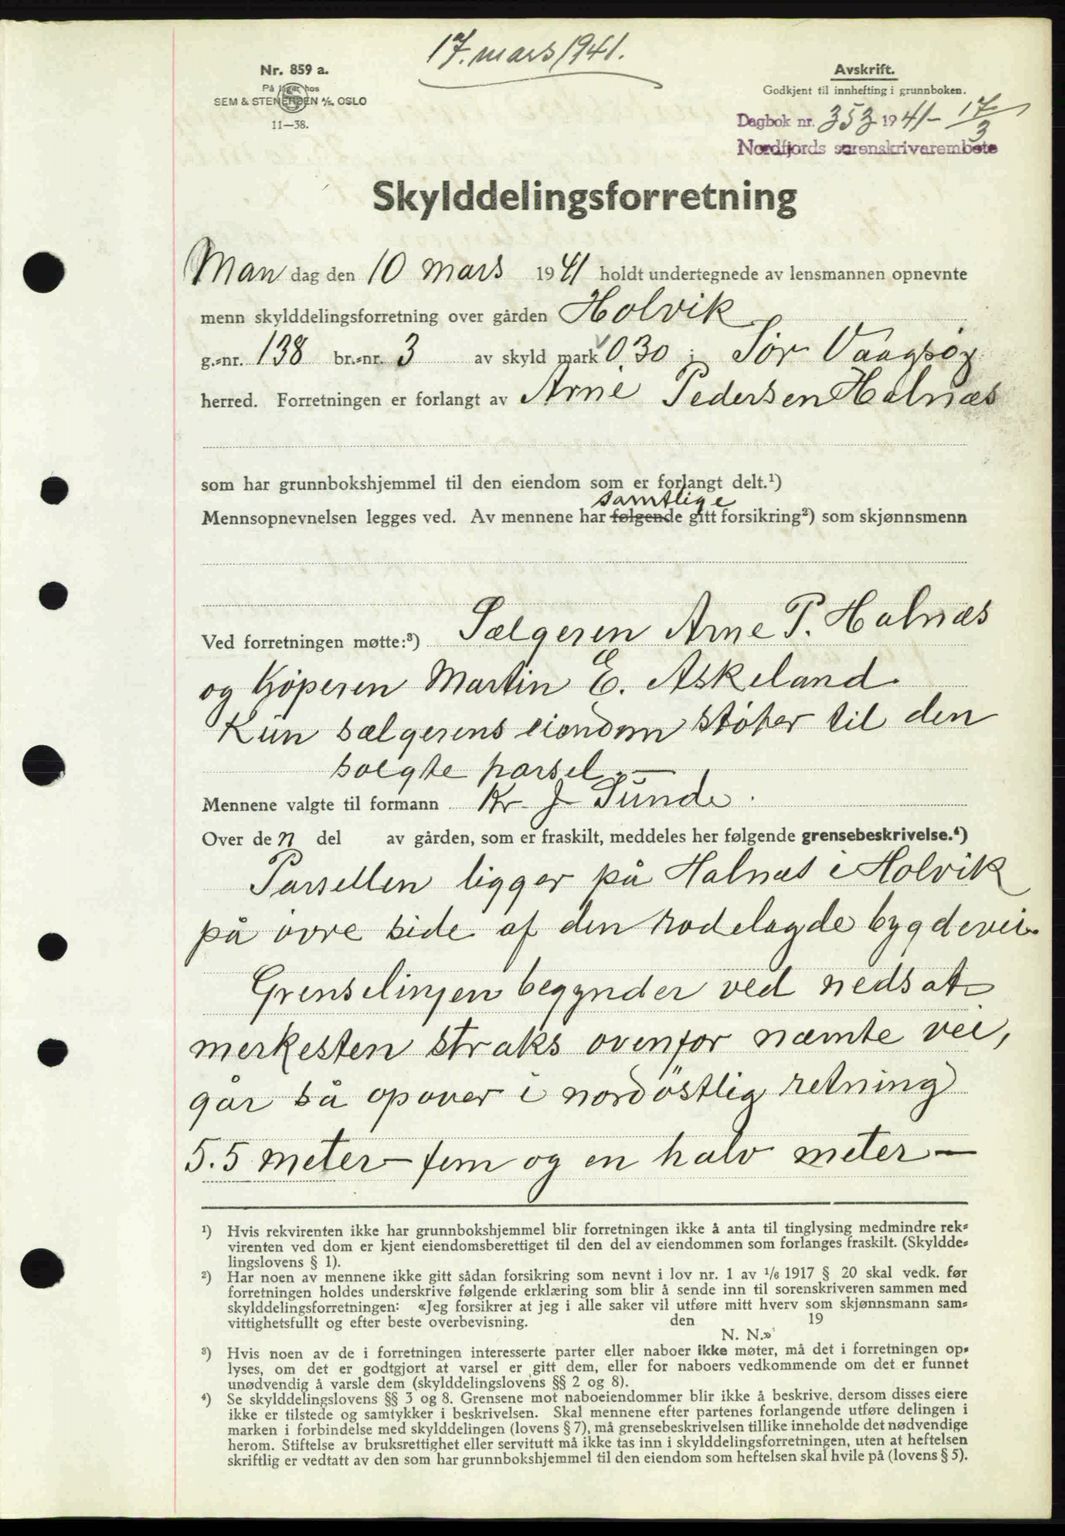 17. mars 1941.
Nr. 859 a.
På lager hos
SEM & STENERSEN A/S. OSLO
11—38.
Avskrift.
Godkjent til innhefting i grunnboken.
Dagbok nr. 353 1941 - 17/3
Nordfjords sorenskriverembete
Skylddelingsforretning
Man dag den 10 mars 1941 holdt undertegnede av lensmannen opnevnte
menn skylddelingsforretning over gården Holvik
g.-nr. 138 br.-nr. 3 av skyld mark 0.30 i Sør Vaagsøy
herred. Forretningen er forlangt av Arne Pedersen Halnæs
som har grunnbokshjemmel til den eiendom som er forlangt delt.¹)
samtlige
Mennsopnevnelsen legges ved. Av mennene har følgende gitt forsikring²) som skjønnsmenn
Ved forretningen møtte:³) Sælgeren Arne P. Halnæs
og Kjøperen Martin E. Askeland.
Kun sælgerens eiendom støter til den
solgte parsel. —
Mennene valgte til formann Kr. J. Sunde.
Over de n del av gården, som er fraskilt, meddeles her følgende grensebeskrivelse.⁴)
Parsellen ligger på Halnæs i Holvik
på øvre side af den rodelagde bygdevei.
Grenselinjen begynder ved nedsat
merkesten straks ovenfor næmte vei,
går så opover i nordöstlig retning
5.5 meter — fem og en halv meter —
¹) Hvis rekvirenten ikke har grunnbokshjemmel blir forretningen ikke å anta til tinglysing medmindre rek-
virenten ved dom er kjent eiendomsberettiget til den del av eiendommen som forlanges fraskilt. (Skyldde-
lingslovens § 1).
²) Har noen av mennene ikke gitt sådan forsikring som nevnt i lov nr. 1 av 1/6 1917 § 20 skal vedk. før
forretningen holdes underskrive følgende erklæring som blir å sende inn til sorenskriveren sammen med
skylddelingsforretningen: «Jeg forsikrer at jeg i alle saker vil utføre mitt hverv som skjønnsmann sam-
vittighetsfullt og efter beste overbevisning. den 19
N. N.»
³) Hvis noen av de i forretningen interesserte parter eller naboer ikke møter, må det i forretningen op-
lyses, om det er godtgjort at varsel er gitt dem, eller for naboers vedkommende om det er funnet
unødvendig å varsle dem (skylddelingslovens §§ 2 og 8).
⁴) Se skylddelingslovens §§ 3 og 8. Grensene mot naboeiendommer blir ikke å beskrive, dersom disses eiere
ikke er tilstede og samtykker i beskrivelsen. Skal mennene efter partenes forlangende utføre delingen i
marken i forbindelse med skylddelingen (lovens § 7), må grensebeskrivelsen tillike inneholde det nødvendige
herom. Stiftelse av bruksrettighet eller servitutt må ikke tas inn i skylddelingsforretningen, uten at heftelsen
skriftlig er vedtatt av den som har grunnbokshjemmel til den eiendom som heftelsen skal hvile på (lovens § 5).